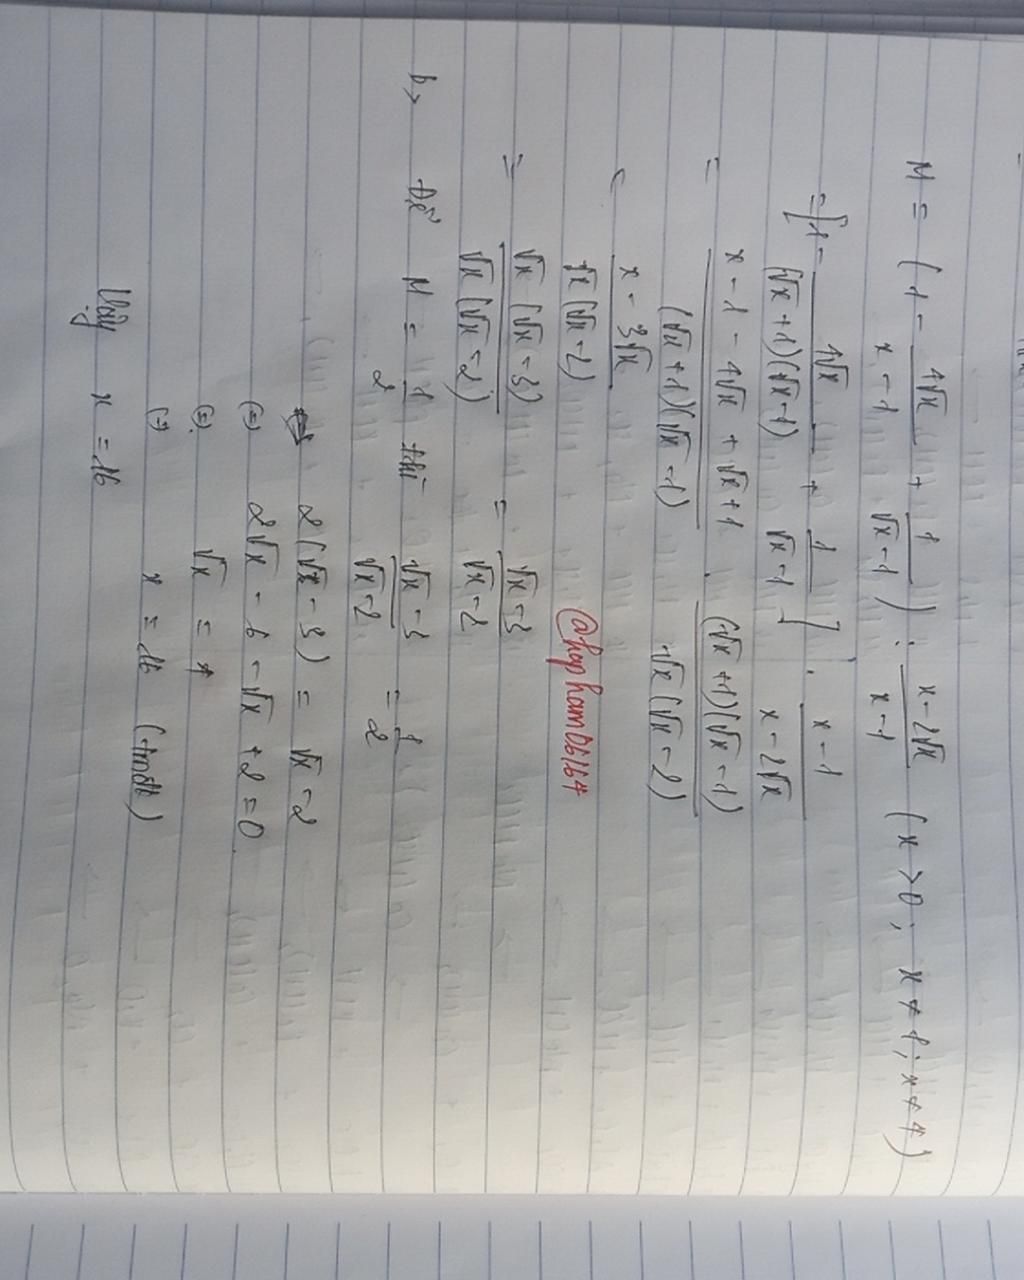 M = ( 1 - 4√x / x - 1 + 1 / √x - 1 ) : x - 2√x / x - 1 ( x > 0 ; x ≠ 1 ; x ≠ 4 )
= [ 1 - 4√x / (√x + 1)(√x - 1) + 1 / √x - 1 ] . x - 1 / x - 2√x
= x - 1 - 4√x + √x + 1 / (√x + 1)(√x - 1) . (√x + 1)(√x - 1) / √x (√x - 2)
= x - 3√x / √x (√x - 2)
@hopham06164
= √x (√x - 3) / √x (√x - 2) = √x - 3 / √x - 2
b, Để M = 1 / 2 thì √x - 3 / √x - 2 = 1 / 2
2(√x - 3) = √x - 2
(=) 2√x - 6 - √x + 2 = 0
(=) √x = 4
(=) x = 16 (tmđk)
Vậy x = 16